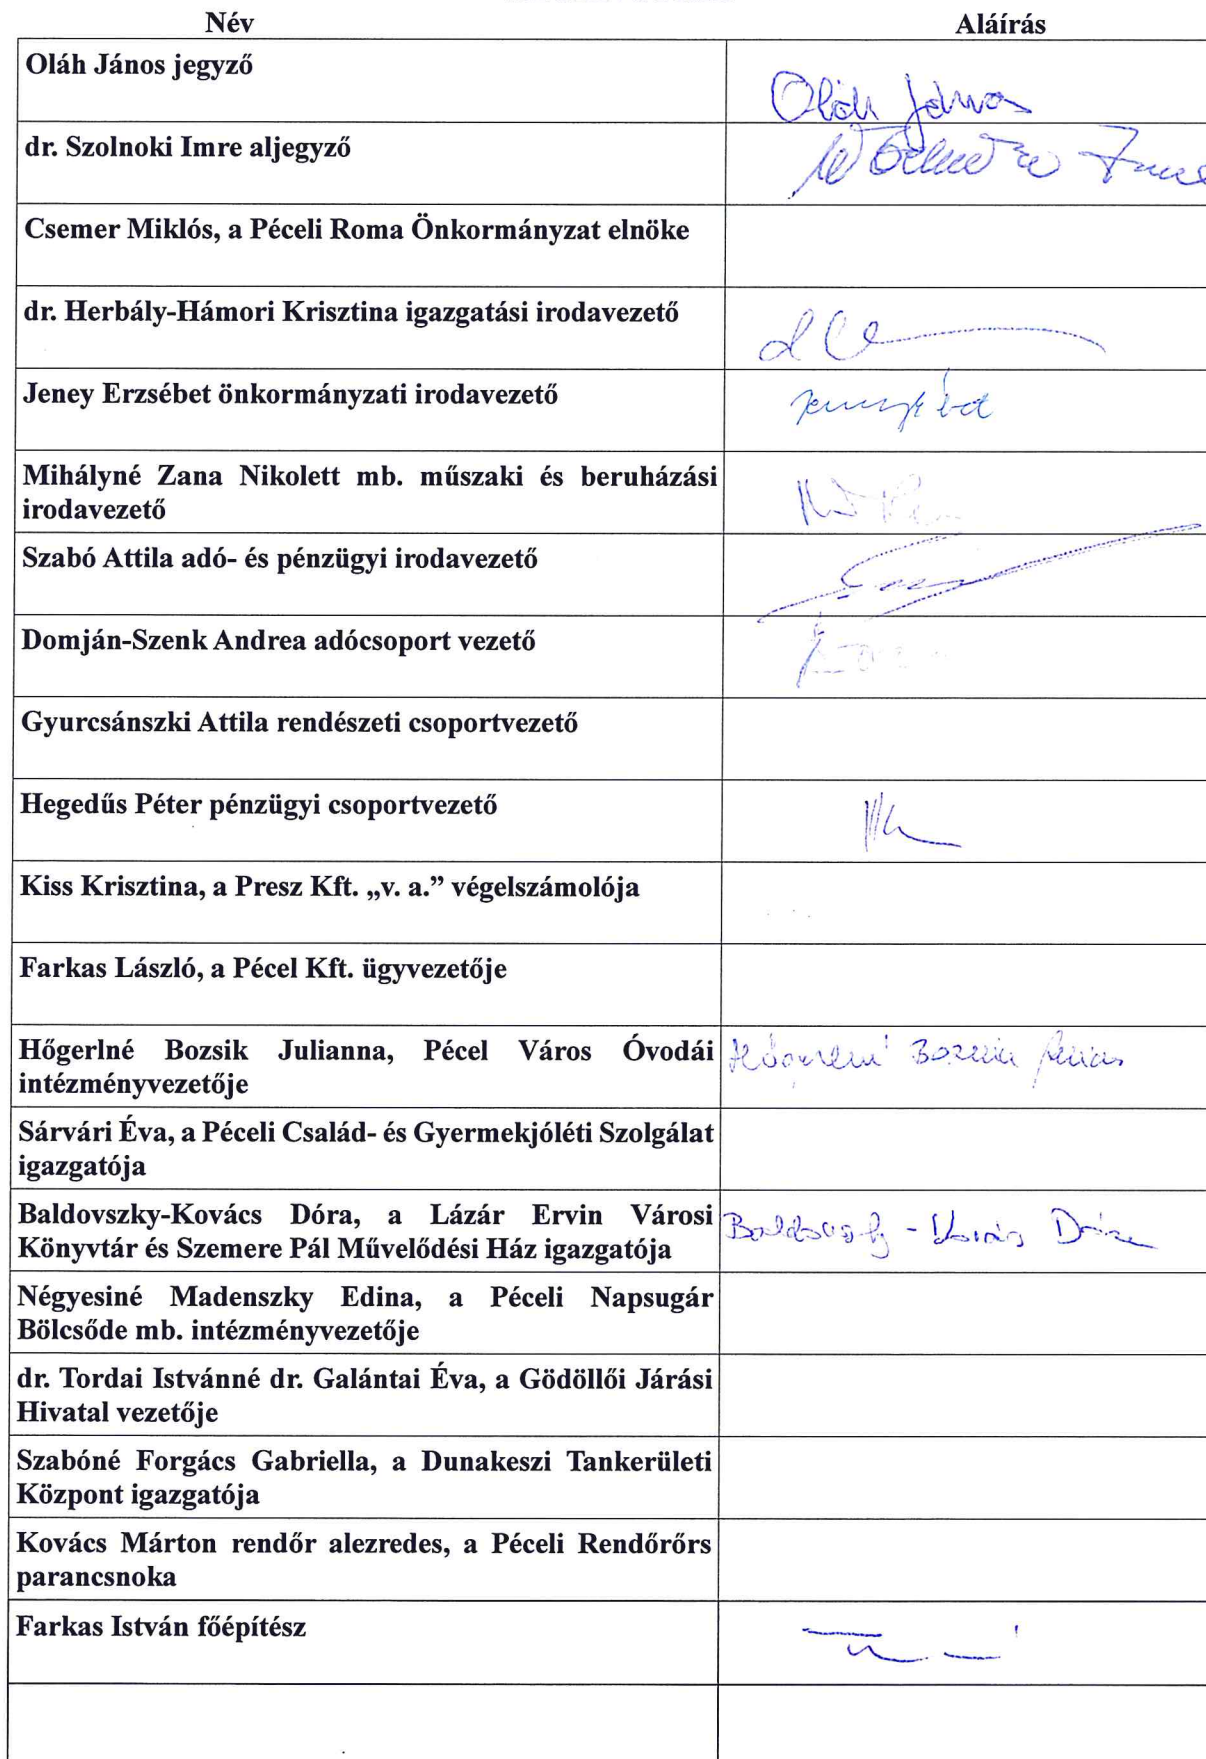 Név Aláírás
Oláh János jegyző
Oláh János
dr. Szolnoki Imre aljegyző
Csemer Miklós, a Péceli Roma Önkormányzat elnöke
dr. Herbály-Hámori Krisztina igazgatási irodavezető
Jeney Erzsébet önkormányzati irodavezető
Mihályné Zana Nikolett mb. műszaki és beruházási
irodavezető
Szabó Attila adó- és pénzügyi irodavezető
Domján-Szenk Andrea adócsoport vezető
Gyurcsánszki Attila rendészeti csoportvezető
Hegedűs Péter pénzügyi csoportvezető
Kiss Krisztina, a Presz Kft. „v. a.” végelszámolója
Farkas László, a Pécel Kft. ügyvezetője
Hőgerlné Bozsik Julianna, Pécel Város Óvodái
intézményvezetője
Sárvári Éva, a Péceli Család- és Gyermekjóléti Szolgálat
igazgatója
Baldovszky-Kovács Dóra, a Lázár Ervin Városi
Könyvtár és Szemere Pál Művelődési Ház igazgatója
Baldovszky-Kovács Dóra
Négyesiné Madenszky Edina, a Péceli Napsugár
Bölcsőde mb. intézményvezetője
dr. Tordai Istvánné dr. Galántai Éva, a Gödöllői Járási
Hivatal vezetője
Szabóné Forgács Gabriella, a Dunakeszi Tankerületi
Központ igazgatója
Kovács Márton rendőr alezredes, a Péceli Rendőrőrs
parancsnoka
Farkas István főépítész